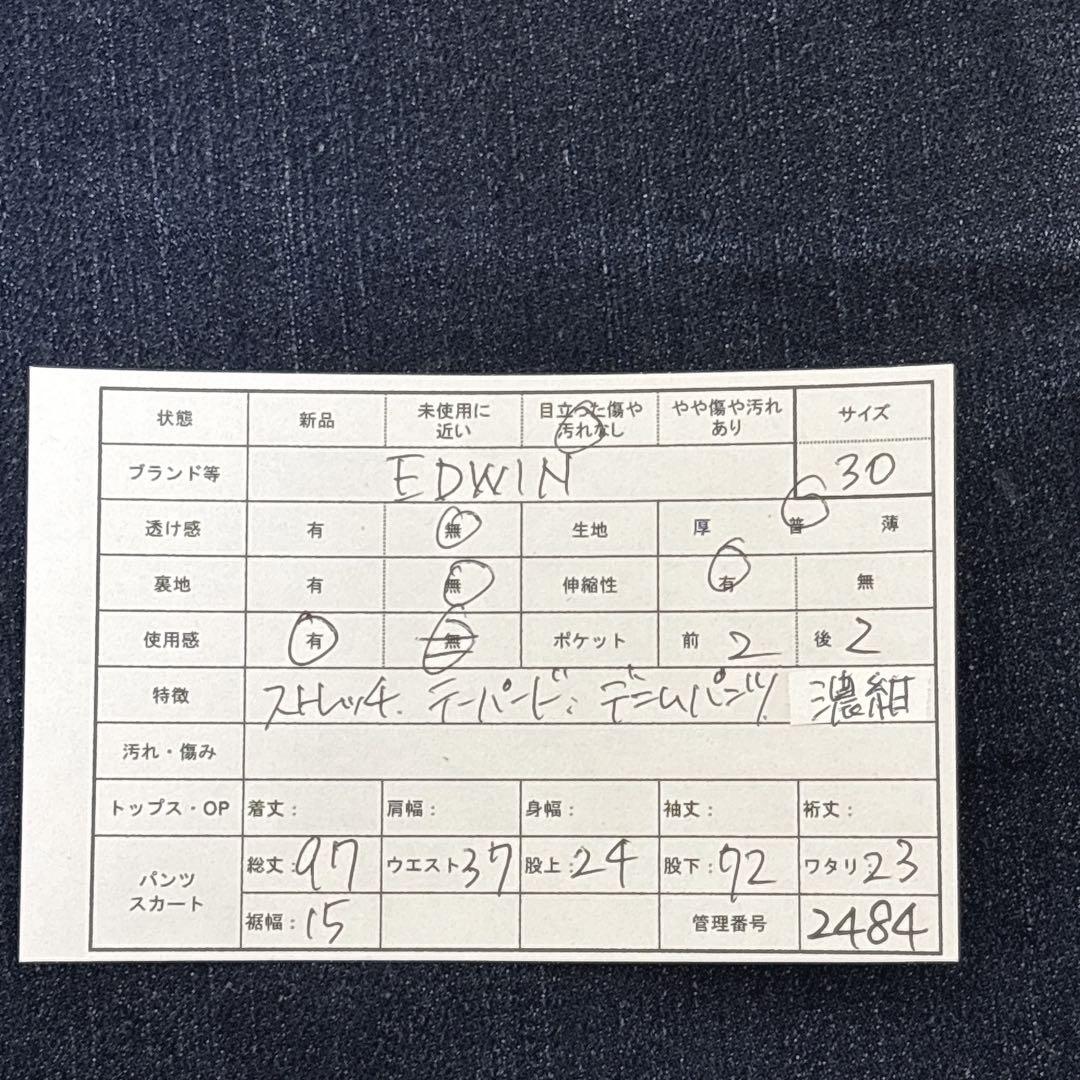 状態 新品 未使用に近い 目立った傷や汚れなし やや傷や汚れあり サイズ
ブランド等 EDWIN 30
透け感 有 無 生地 厚 普 薄
裏地 有 無 伸縮性 有 無
使用感 有 無 ポケット 前 2 後 2
特徴 ストレッチ. テーパード. デニムパンツ. 濃紺
汚れ・傷み
トップス・OP 着丈: 肩幅: 身幅: 袖丈: 裄丈:
パンツスカート 総丈:97 ウエスト37 股上:24 股下:72 ワタリ:23
裾幅:15 管理番号 2484